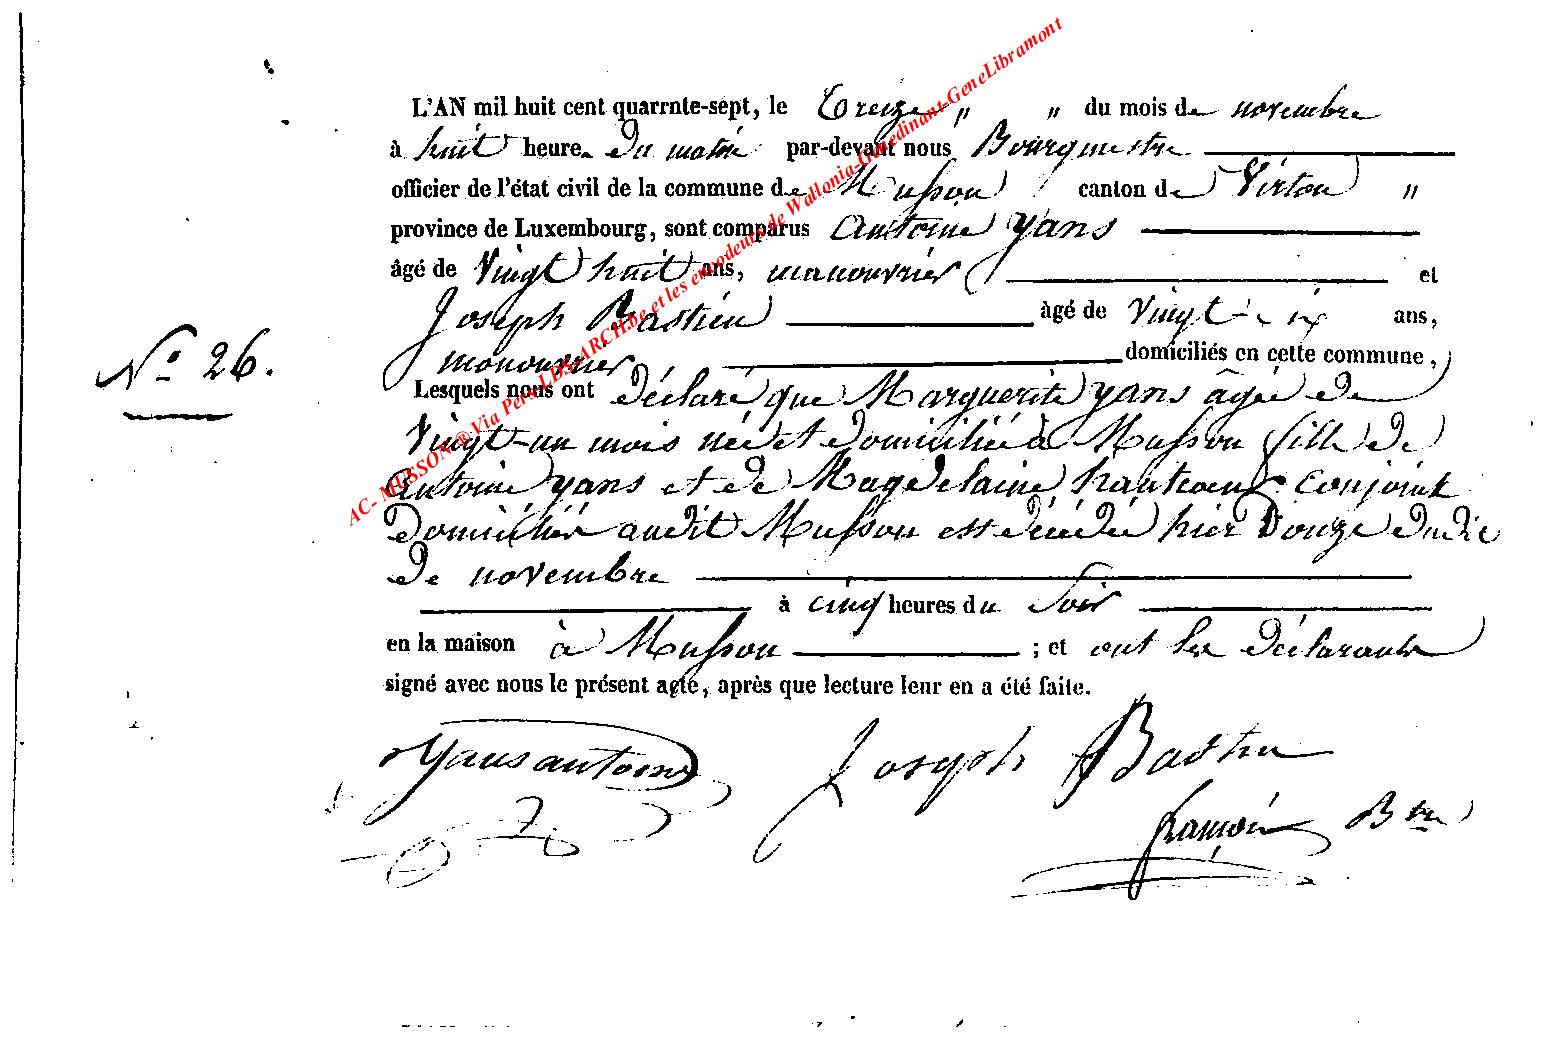 L'AN mil huit cent quarrnte-sept, le Treize " " du mois de novembre
à huit heure du matin par-devant nous Bourgmestre
officier de l'état civil de la commune de Musson canton de Virton "
province de Luxembourg, sont comparus Antoine Yans
âgé de Vingt huit ans, manouvrier et
Joseph Bastien àgé de Vingt-six ans,
manouvrier domiciliés en cette commune,
N° 26.
Lesquels nous ont déclaré que Marguerite yans âgée de
Vingt-un mois née et domiciliée à Musson fille de
Antoine yans et de Magdelaine hautcoeur conjoint
domiciliés audit Musson est décédée hier Douze dudit
de novembre
à cinq heures du Soir
en la maison à Musson ; et ont les déclarants
signé avec nous le présent acte, après que lecture leur en a été faite.
Yans antoine Joseph Bastien
Bre
AC- MUSSON ® Via Pers-LDS-ARCH.be et les encodeurs de Wallonia-Genedinant-GeneLibramont